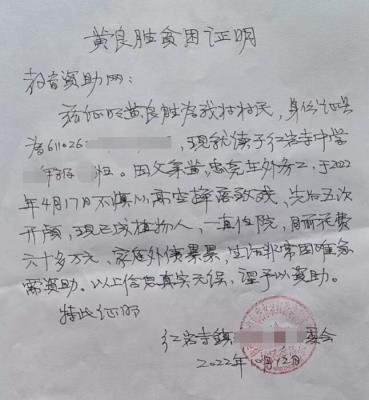 黄良胜贫困证明
教育资助网：
兹证明黄良胜为我村村民，身份证号
为611026，现就读于红岩寺中学
年级班。因父亲黄忠尧在外务工，于2022
年4月17日不慎从高空摔落致残，先后五次
开颅，现已成植物人，一直住院，目前花费
六十多万元，家庭外债累累，生活非常困难急
需资助。以上信息真实无误，望予以资助。
特此证明
红岩寺镇委会
2022年10月12日